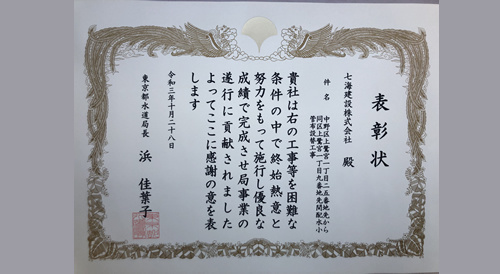 表彰状
七海建設株式会社 殿
件名 中野区上鷺宮一丁目二五番地先から
同区上鷺宮一丁目九番地先間配水小
管布設替工事
貴社は右の工事等を困難な
条件の中で終始熱意と
努力をもって施行し優良な
成績で完成させ局事業の
遂行に貢献されました
よってここに感謝の意を表
します
令和三年十月二十八日
東京都水道局長 浜 佳葉子